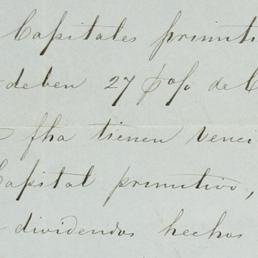 Capitales primiti
deben 27 p% de C
fha tienen venci
Capital primitivo,
dividendos hechos